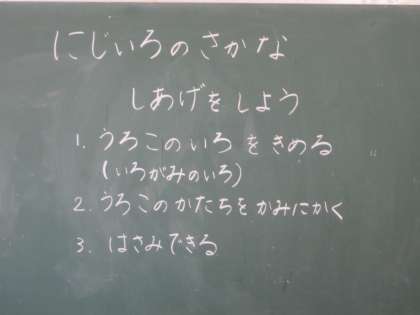 にじいろのさかな
しあげをしよう
1. うろこのいろをきめる
(いろがみのいろ)
2. うろこのかたちをかみにかく
3. はさみできる